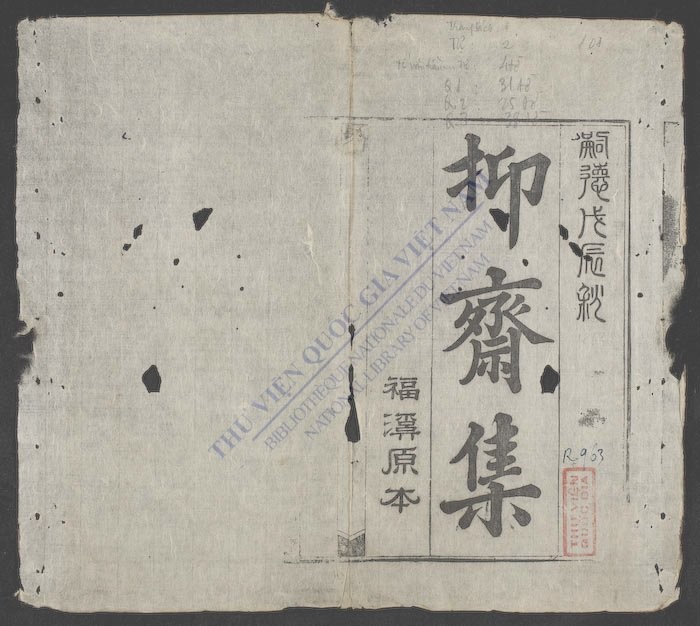 嗣德戊辰秋
抑齋集
福溪原本
R.963
THƯ VIỆN
QUỐC GIA
THƯ VIỆN QUỐC GIA VIỆT NAM
BIBLIOTHÈQUE NATIONALE DU VIETNAM
NATIONAL LIBRARY OF VIETNAM